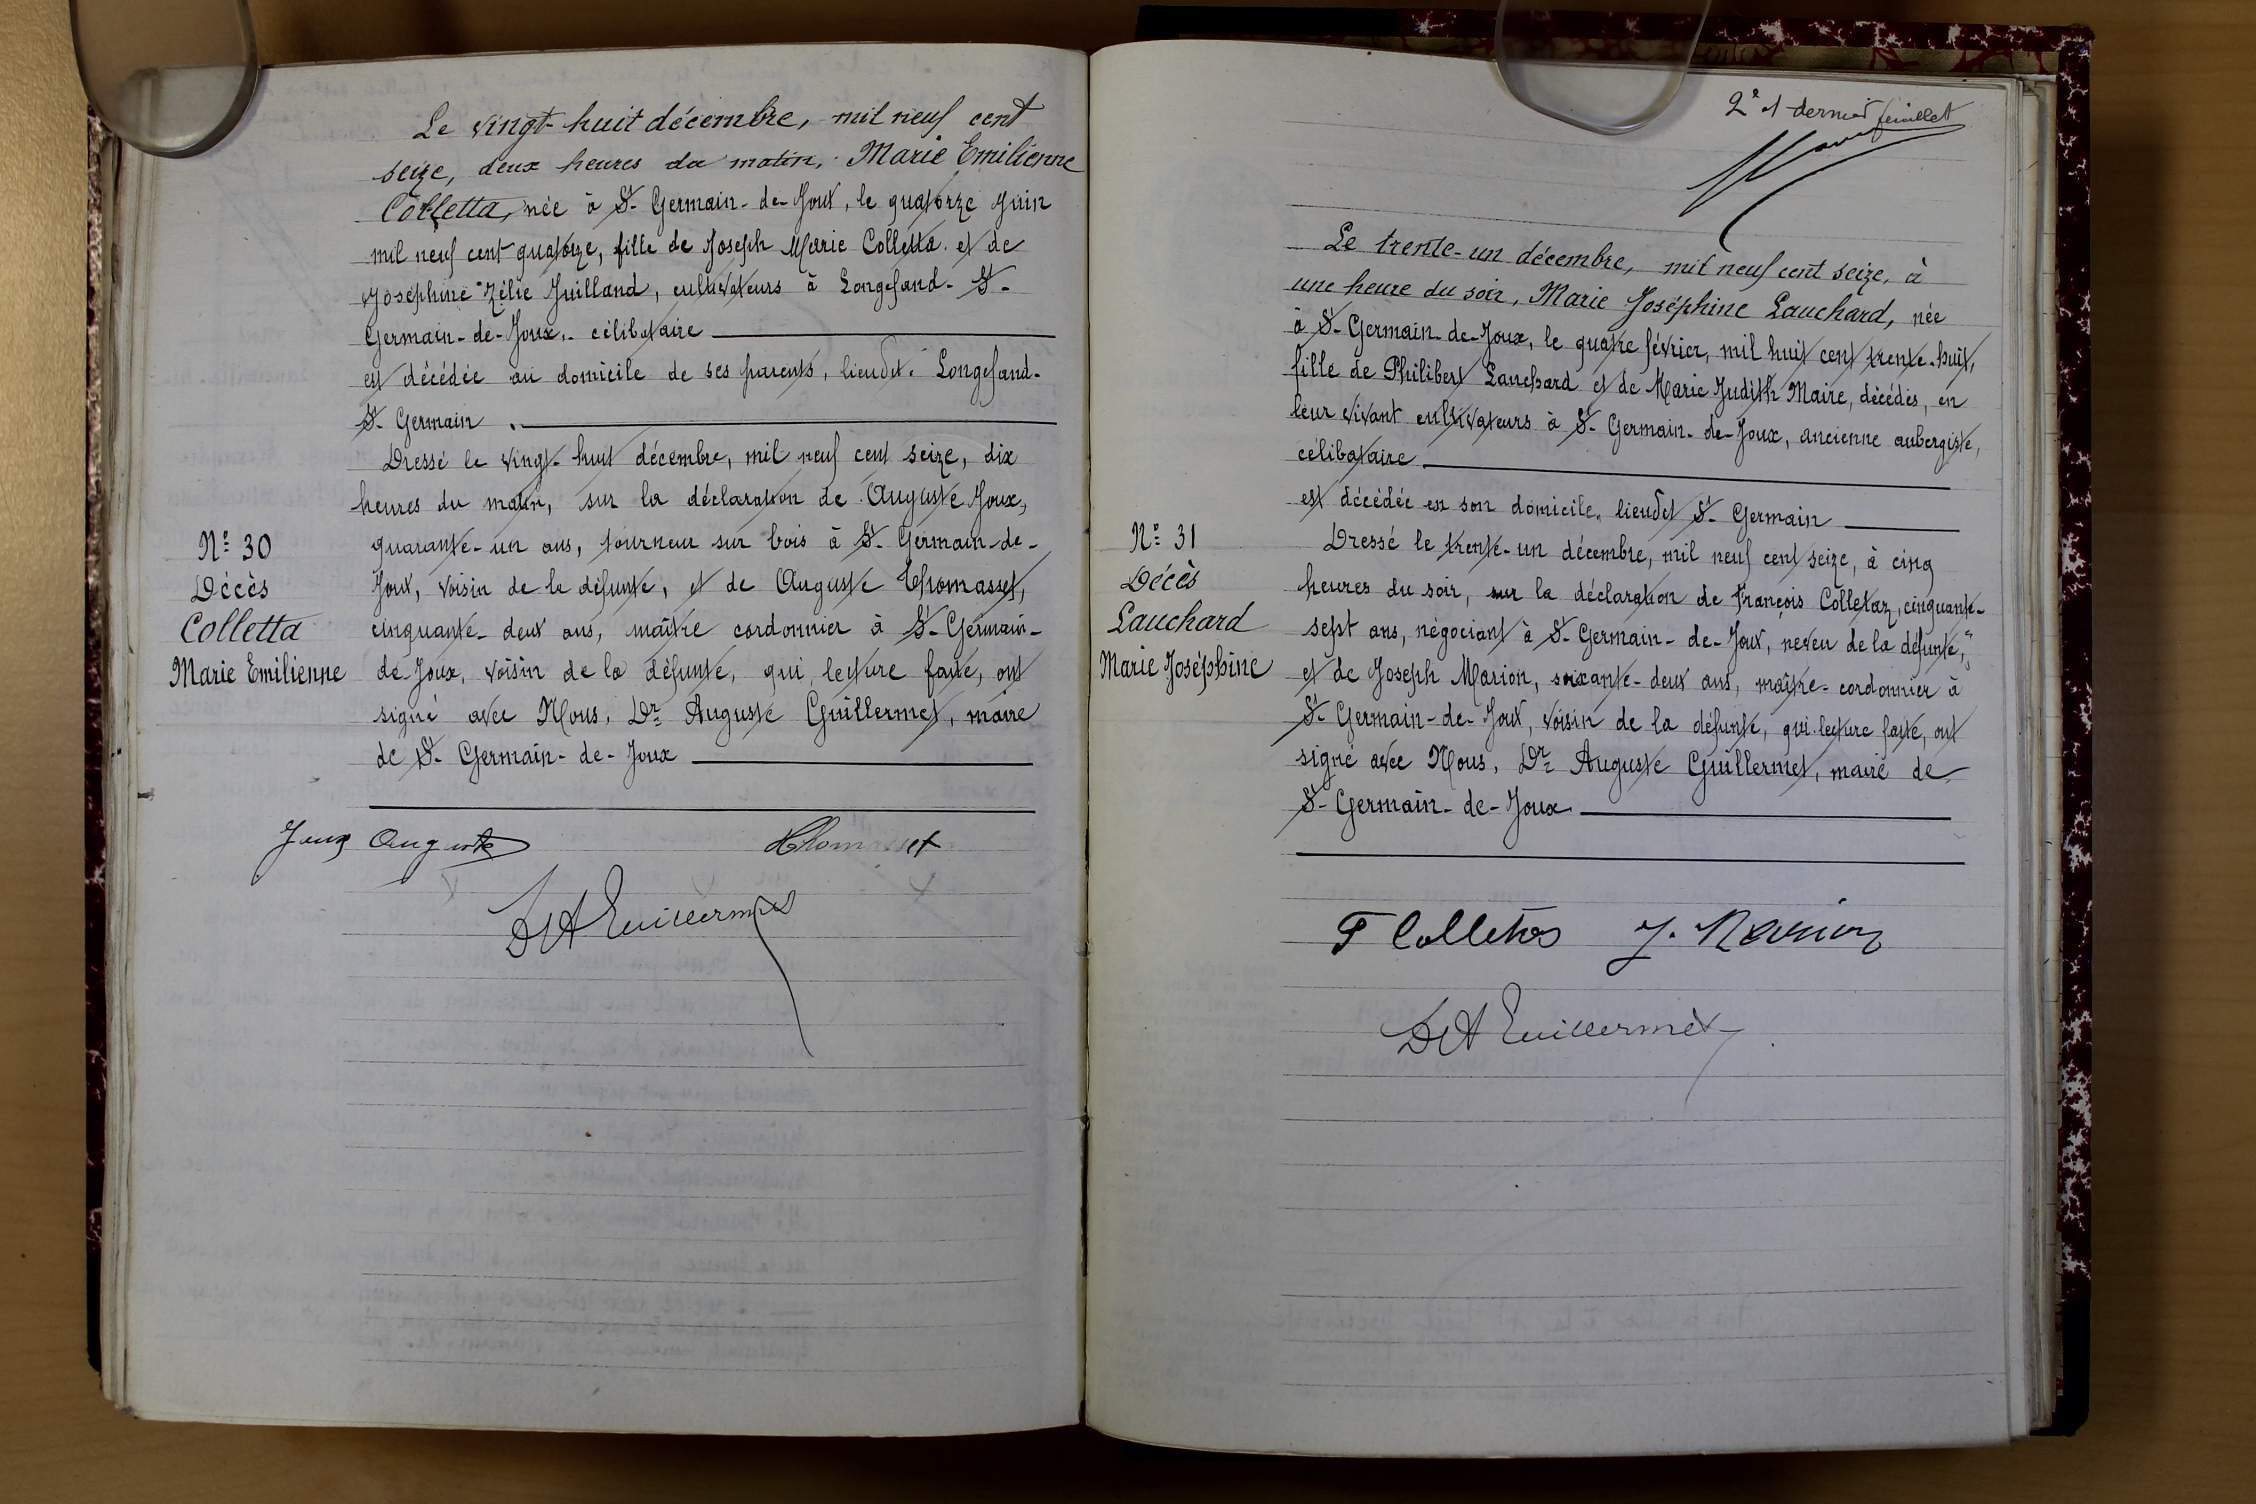 Le vingt-huit décembre, mil neuf cent
seize, deux heures du matin, Marie Emilienne
Colletta, née à St-Germain-de-Joux, le quatorze juin
mil neuf cent quatorze, fille de Joseph Marie Colletta et de
Joséphine Zélie Juilland, cultivateurs à Longefand-St-
Germain-de-Joux, célibataire
est décédée au domicile de ses parents, lieudit Longefand-
St-Germain.
Dressé le vingt-huit décembre, mil neuf cent seize, dix
heures du matin, sur la déclaration de Auguste Joux,
quarante-un ans, tourneur sur bois à St-Germain-de-
Joux, voisin de la défunte, et de Auguste Thomasset,
cinquante-deux ans, maître cordonnier à St-Germain-
de-Joux, voisin de la défunte, qui, lecture faite, ont
signé avec Nous, Dr Auguste Guillermet, maire
de St-Germain-de-Joux
No 30
Décès
Colletta
Marie Emilienne
Joux Auguste
Thomasset
Dr A Guillermet
2e et dernier feuillet
Le trente-un décembre, mil neuf cent seize, à
une heure du soir, Marie Joséphine Lauchard, née
à St-Germain-de-Joux, le quatre février, mil huit cent trente-huit,
fille de Philibert Lauchard et de Marie Judith Maire, décédés, en
leur vivant cultivateurs à St-Germain-de-Joux, ancienne aubergiste,
célibataire
est décédée en son domicile, lieudit St-Germain
Dressé le trente-un décembre, mil neuf cent seize, à cinq
heures du soir, sur la déclaration de François Colletaz, cinquante-
sept ans, négociant à St-Germain-de-Joux, neveu de la défunte,
et de Joseph Marion, soixante-deux ans, maître-cordonnier à
St-Germain-de-Joux, voisin de la défunte, qui, lecture faite, ont
signé avec Nous, Dr Auguste Guillermet, maire de
St-Germain-de-Joux
No 31
Décès
Lauchard
Marie Joséphine
F Colletaz J. Marion
Dr A Guillermet